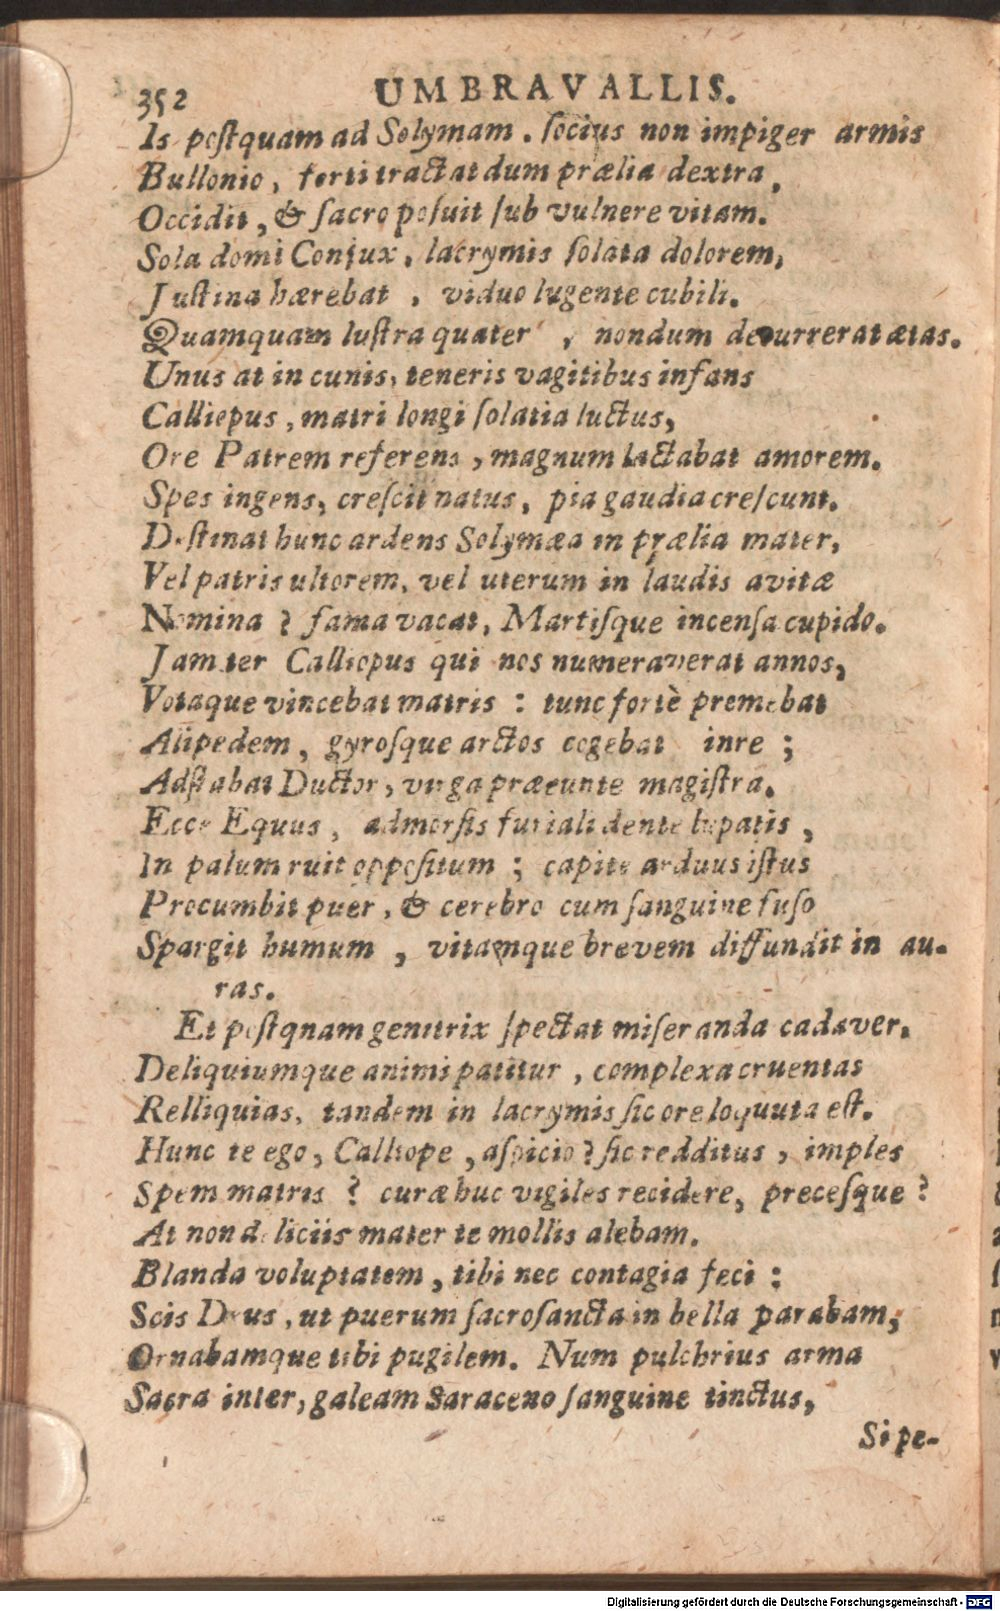 352 UMBRA VALLIS.
Is postquam ad Solymam. socius non impiger armis
Bullonio, forti tractat dum prælia dextra,
Occidit, & sacro posuit sub vulnere vitam.
Sola domi Conjux, lacrymis solata dolorem,
Justina hærebat, viduo lugente cubili.
Quamquam lustra quater, nondum decurrerat ætas.
Unus at in cunis, teneris vagitibus infans
Calliopus, matri longi solatia luctus,
Ore Patrem referens, magnum lactabat amorem.
Spes ingens, crescit natus, pia gaudia crescunt.
Destinat hunc ardens Solymæa in prælia mater,
Vel patris ultorem, vel uterum in laudis avitæ
Nomina? fama vacat, Martisque incensa cupido.
Jam ter Calliopus qui nos numeraverat annos,
Votaque vincebat matris: tunc fortè premebat
Alipedem, gyrosque arctos cogebat inre;
Adstabat Ductor, virga præeunte magistra.
Ecce Equus, admorsis furiali dente lupatis,
In palum ruit oppositum; capite arduus istus
Procumbit puer, & cerebro cum sanguine fuso
Spargit humum, vitamque brevem diffundit in au-
ras.
Et postqnam genitrix spectat miseranda cadaver.
Deliquiumque animi patitur, complexa cruentas
Relliquias, tandem in lacrymis sic ore loquuta est.
Hunc te ego, Calliope, aspicio? sic redditus, imples
Spem matris? curæ huc vigiles recidere, precesque?
At non deliciis mater te mollis alebam.
Blanda voluptatem, tibi nec contagia feci:
Scis Deus, ut puerum sacrosancta in bella parabam,
Ornabamque tibi pugilem. Num pulchrius arma
Sacra inter, galeam Saraceno sanguine tinctus,
Si pe-
Digitalisierung gefördert durch die Deutsche Forschungsgemeinschaft - DFG